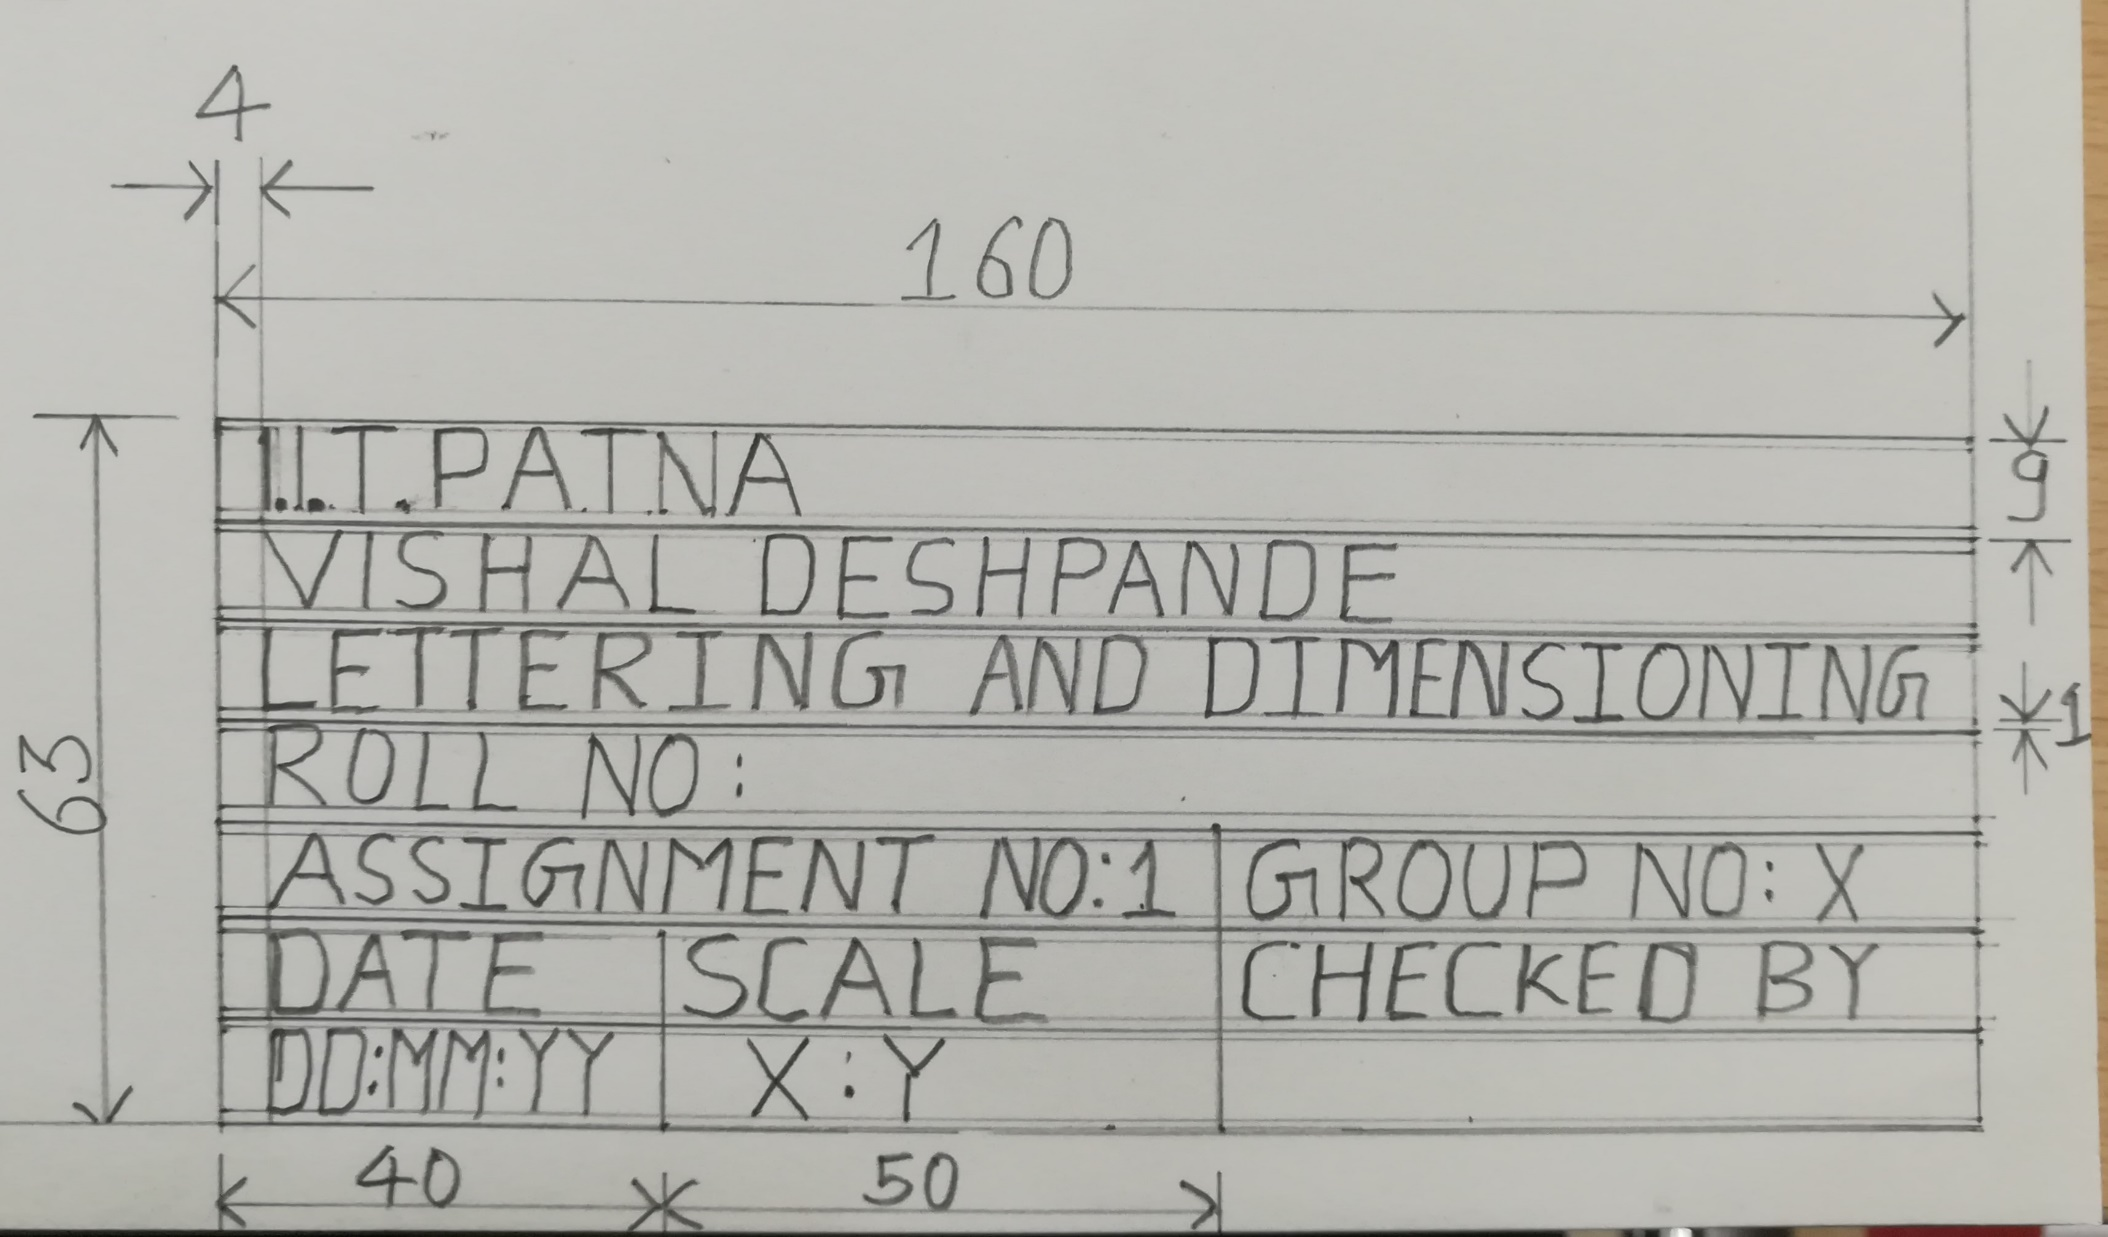 4
160
I.I.T.PATNA
9
VISHAL DESHPANDE
LETTERING AND DIMENSIONING
1
63
ROLL NO:
ASSIGNMENT NO:1 GROUP NO: X
DATE SCALE CHECKED BY
DD:MM:YY X:Y
40 50